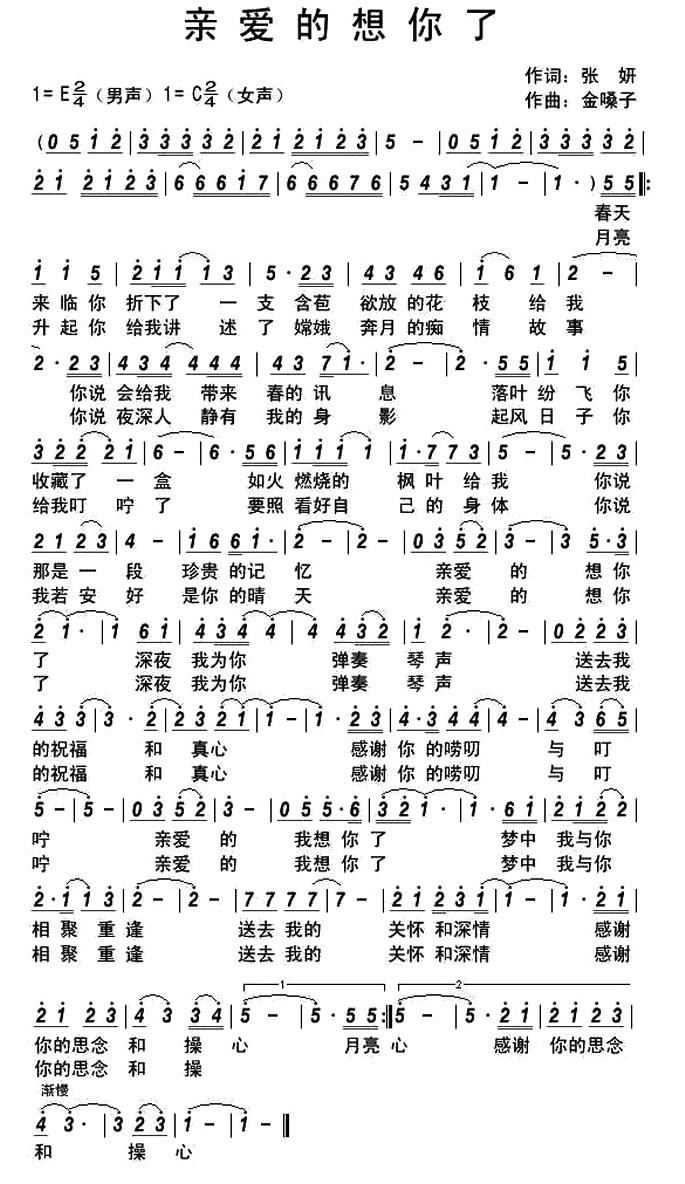 亲爱的想你了
作词：张 妍
1=E2/4（男声）1=C2/4（女声）
作曲：金嗓子
(0 5 1 2 | 3 3 3 3 2 | 2 1 2 1 2 3 | 5 - | 0 5 1 2 | 3 3 3 3 2 |
2 1 2 1 2 3 | 6 6 6 1 7 | 6 6 6 7 6 | 5 4 3 1 | 1 - | 1 · ) 5 5 ‖:
春天
月亮
1 1 5 | 2 1 1 1 3 | 5 · 2 3 | 4 3 4 6 | 1 6 1 | 2 - |
来临你 折下了 一 支 含苞 欲放的花 枝 给 我
升起你 给我讲 述 了 嫦娥 奔月的痴 情 故 事
2 · 2 3 | 4 3 4 4 4 4 | 4 3 7 1 | 2 - | 2 · 5 5 | 1 1 5 |
你说 会给我 带来 春的 讯 息 落叶 纷 飞 你
你说 夜深人 静有 我的 身 影 起风 日 子 你
3 2 2 2 1 | 6 - | 6 · 5 6 | 1 1 1 1 | 1 · 7 7 3 | 5 - | 5 · 2 3 |
收藏了 一 盒 如火 燃烧的 枫 叶 给 我 你说
给我叮 咛 了 要照 看好自 己 的 身 体 你说
2 1 2 3 | 4 - | 1 6 6 1 · | 2 - | 2 - | 0 3 5 2 | 3 - | 3 5 · 3 |
那是 一 段 珍贵 的记 忆 亲爱 的 想你
我若 安 好 是你 的晴 天 亲爱 的 想你
2 1 · | 1 6 1 | 4 3 4 | 4 4 3 2 | 1 2 · | 2 - | 0 2 2 3 |
了 深夜 我为你 弹奏 琴 声 送去我
了 深夜 我为你 弹奏 琴 声 送去我
4 3 3 | 3 · 2 | 2 3 2 1 | 1 - | 1 · 2 3 | 4 · 3 4 4 | 4 - | 4 3 6 5 |
的祝福 和 真心 感谢 你 的唠叨 与 叮
的祝福 和 真心 感谢 你 的唠叨 与 叮
5 - | 5 - | 0 3 5 2 | 3 - | 0 5 5 · 6 | 3 2 1 · | 1 · 6 1 | 2 1 2 2 |
咛 亲爱 的 我想 你 了 梦中 我与你
咛 亲爱 的 我想 你 了 梦中 我与你
2 · 1 1 3 | 2 - | 2 - | 7 7 7 7 | 7 - | 2 1 2 3 1 | 1 - | 1 · 2 1 |
相 聚 重 逢 送去 我的 关怀 和深情 感谢
相 聚 重 逢 送去 我的 关怀 和深情 感谢
1 2
2 1 2 3 | 4 3 3 4 | 5 - | 5 · 5 5 :‖ 5 - | 5 · 2 1 | 2 1 2 3 |
你的思念 和 操 心 月亮 心 感谢 你的思念
你的思念 和 操
渐慢
4 3 · | 3 2 3 | 1 - | 1 - ‖
和 操 心